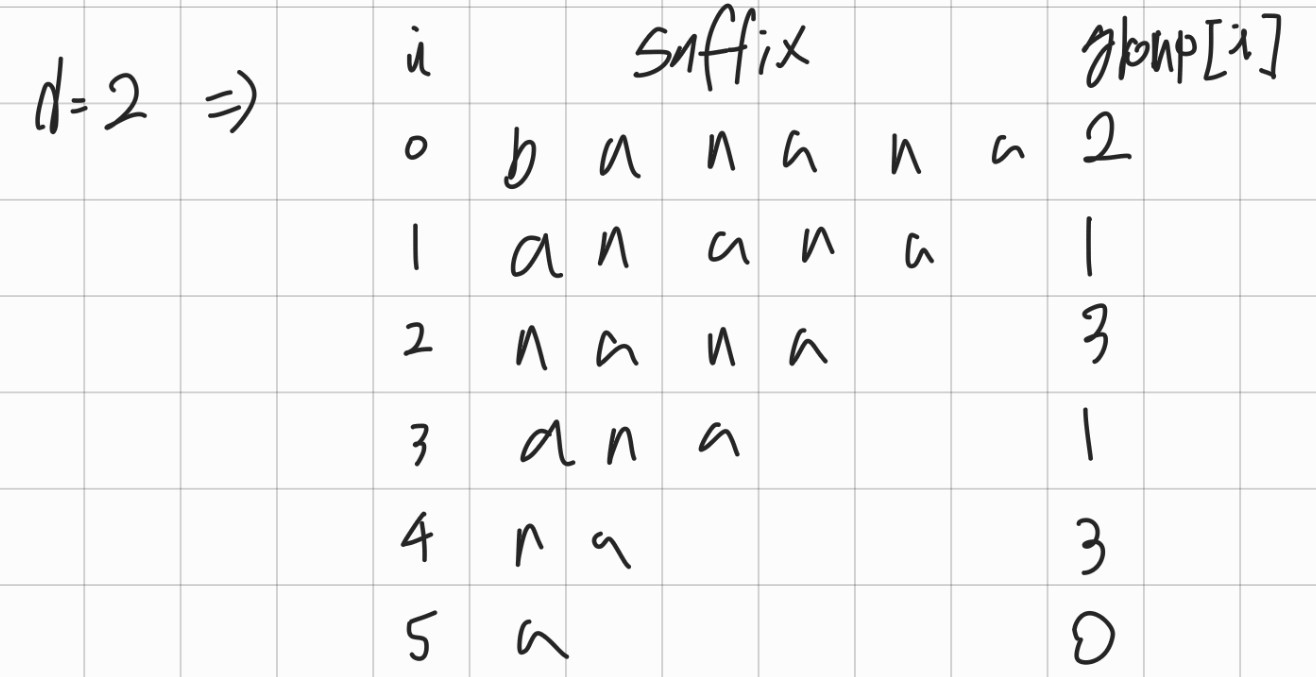 i suffix group[i]
d=2 ⇒
0 b a n a n a 2
1 a n a n a 1
2 n a n a 3
3 a n a 1
4 n a 3
5 a 0